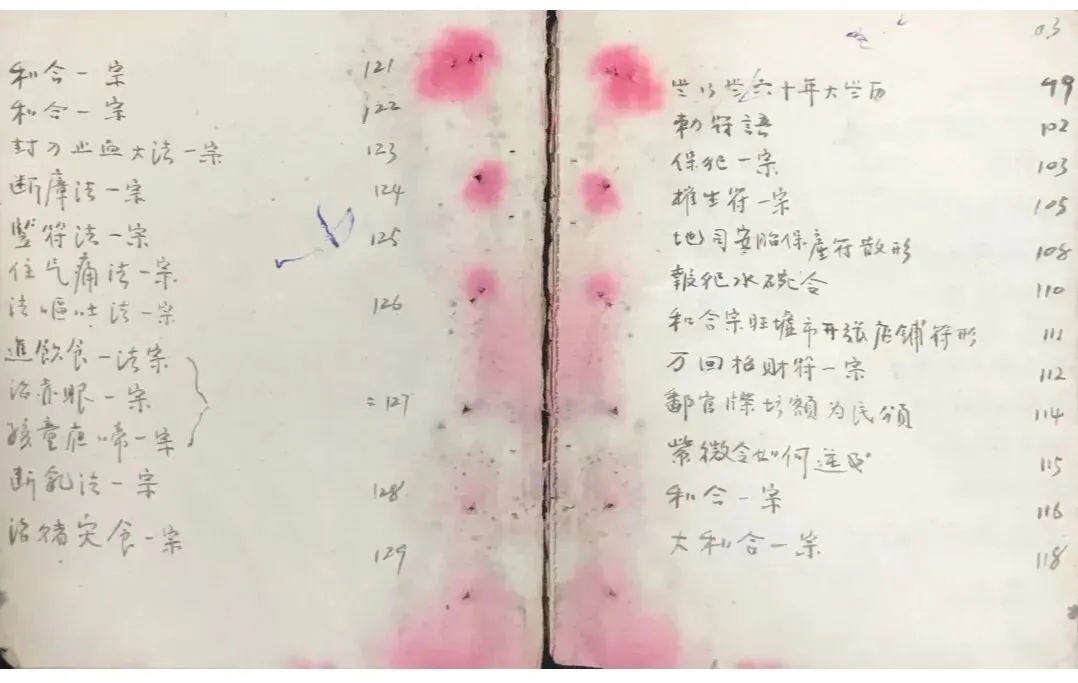 和合一宗 121
和合一宗 122
封刀止血大法一宗 123
断瘴法一宗 124
竖符法一宗 125
住气痛法一宗
法嘔吐法一宗 126
進飲食一法宗
治赤眼一宗 =127
孩童夜啼一宗
断乳法一宗 128
治猪灾食一宗 129
03
六十年大 历 49
勅符語 102
保犯一宗 103
推生符一宗 105
地司安胎保產符散形 108
報犯水碗合 110
和合宗旺墟市开張店鋪符形 111
万回招财符一宗 112
官牒 額为民頒 114
紫微令如何 115
和合一宗 116
大和合一宗 118